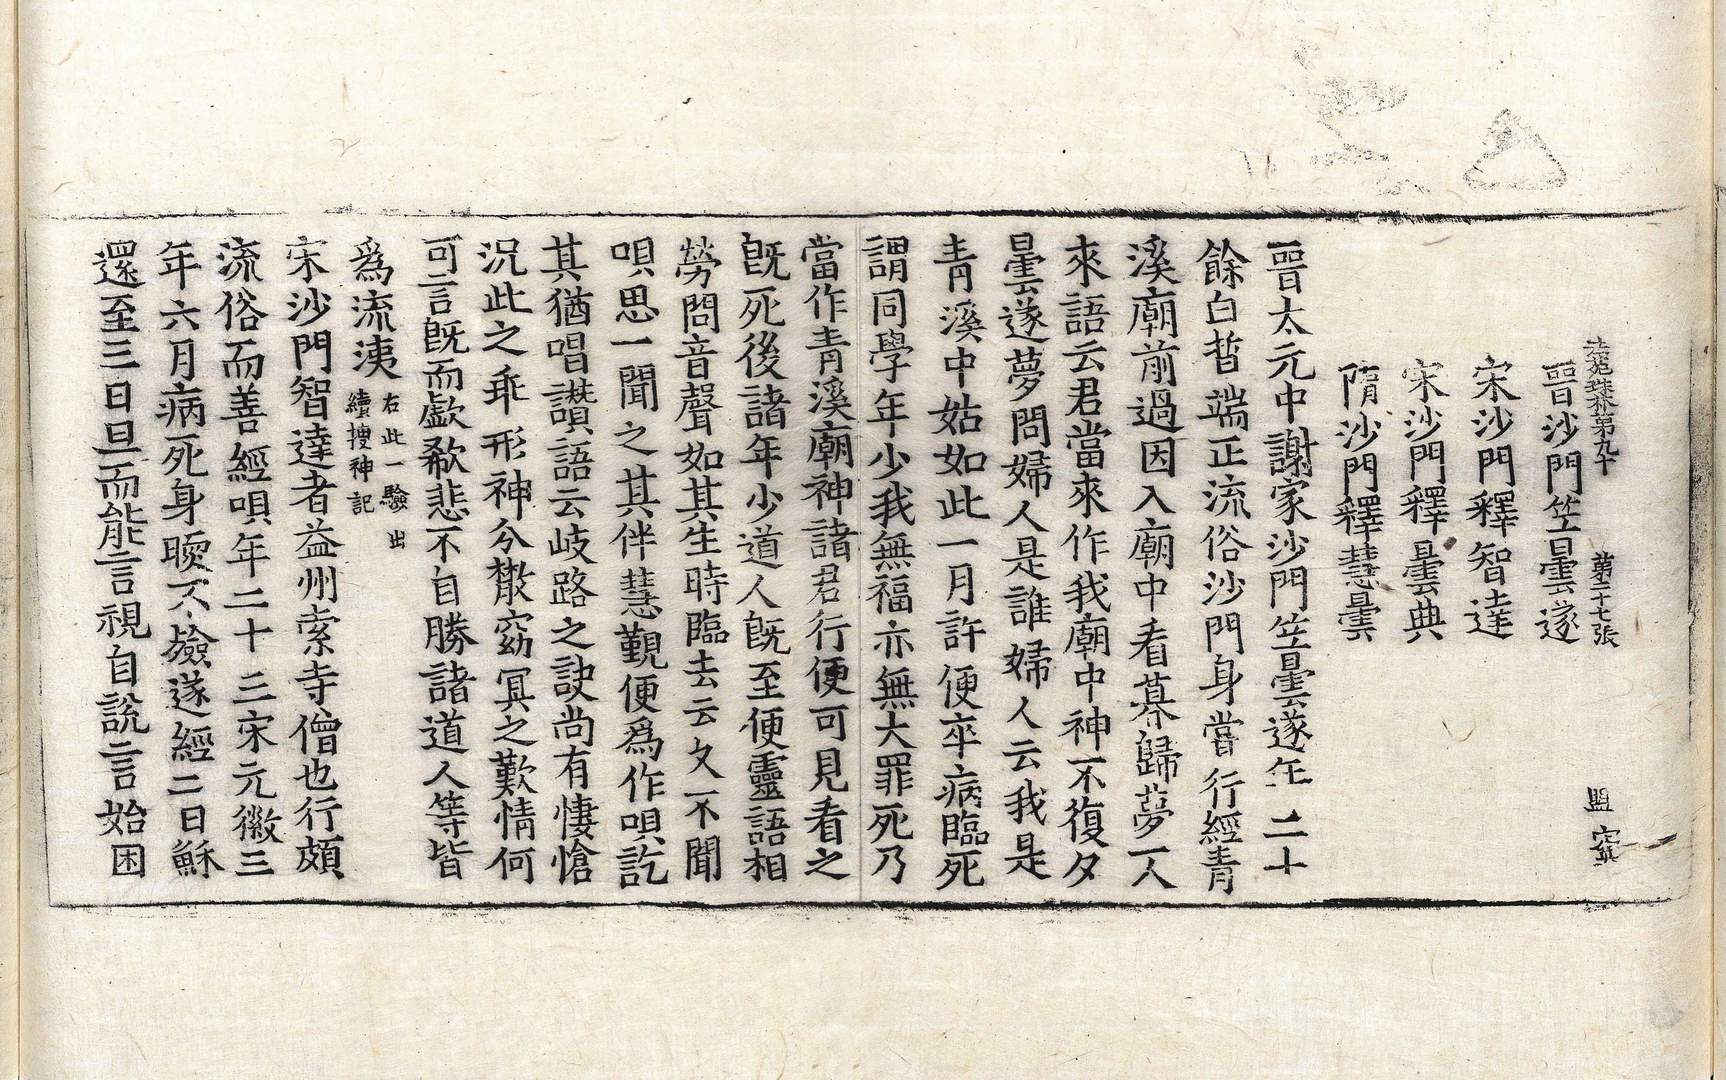 法苑珠林第九十 第二十七張 盟
晉沙門竺曇遂
宋沙門釋智達
宋沙門釋曇典
隋沙門釋慧曇
晉太元中謝家沙門竺曇遂年二十
餘白晳端正流俗沙門身嘗行經青
溪廟前過因入廟中看暮歸夢一人
來語云君當來作我廟中神不復夕
曇遂夢問婦人是誰婦人云我是
青溪中姑如此一月許便卒病臨死
謂同學年少我無福亦無大罪死乃
當作青溪廟神諸君行便可見看之
旣死後諸年少道人旣至便靈語相
勞問音聲如其生時臨去云久不聞
唄思一聞之其伴慧覲便爲作唄訖
其猶唱讚語云歧路之訣尚有悽愴
況此之乖形神分散窈冥之歎情何
可言旣而歔欷悲不自勝諸道人等皆
爲流洟右此一驗出續搜神記
宋沙門智達者益州索寺僧也行頗
流俗而善經唄年二十三宋元徽三
年六月病死身暖不殮遂經二日穌
還至三日旦而能言視自說言始困